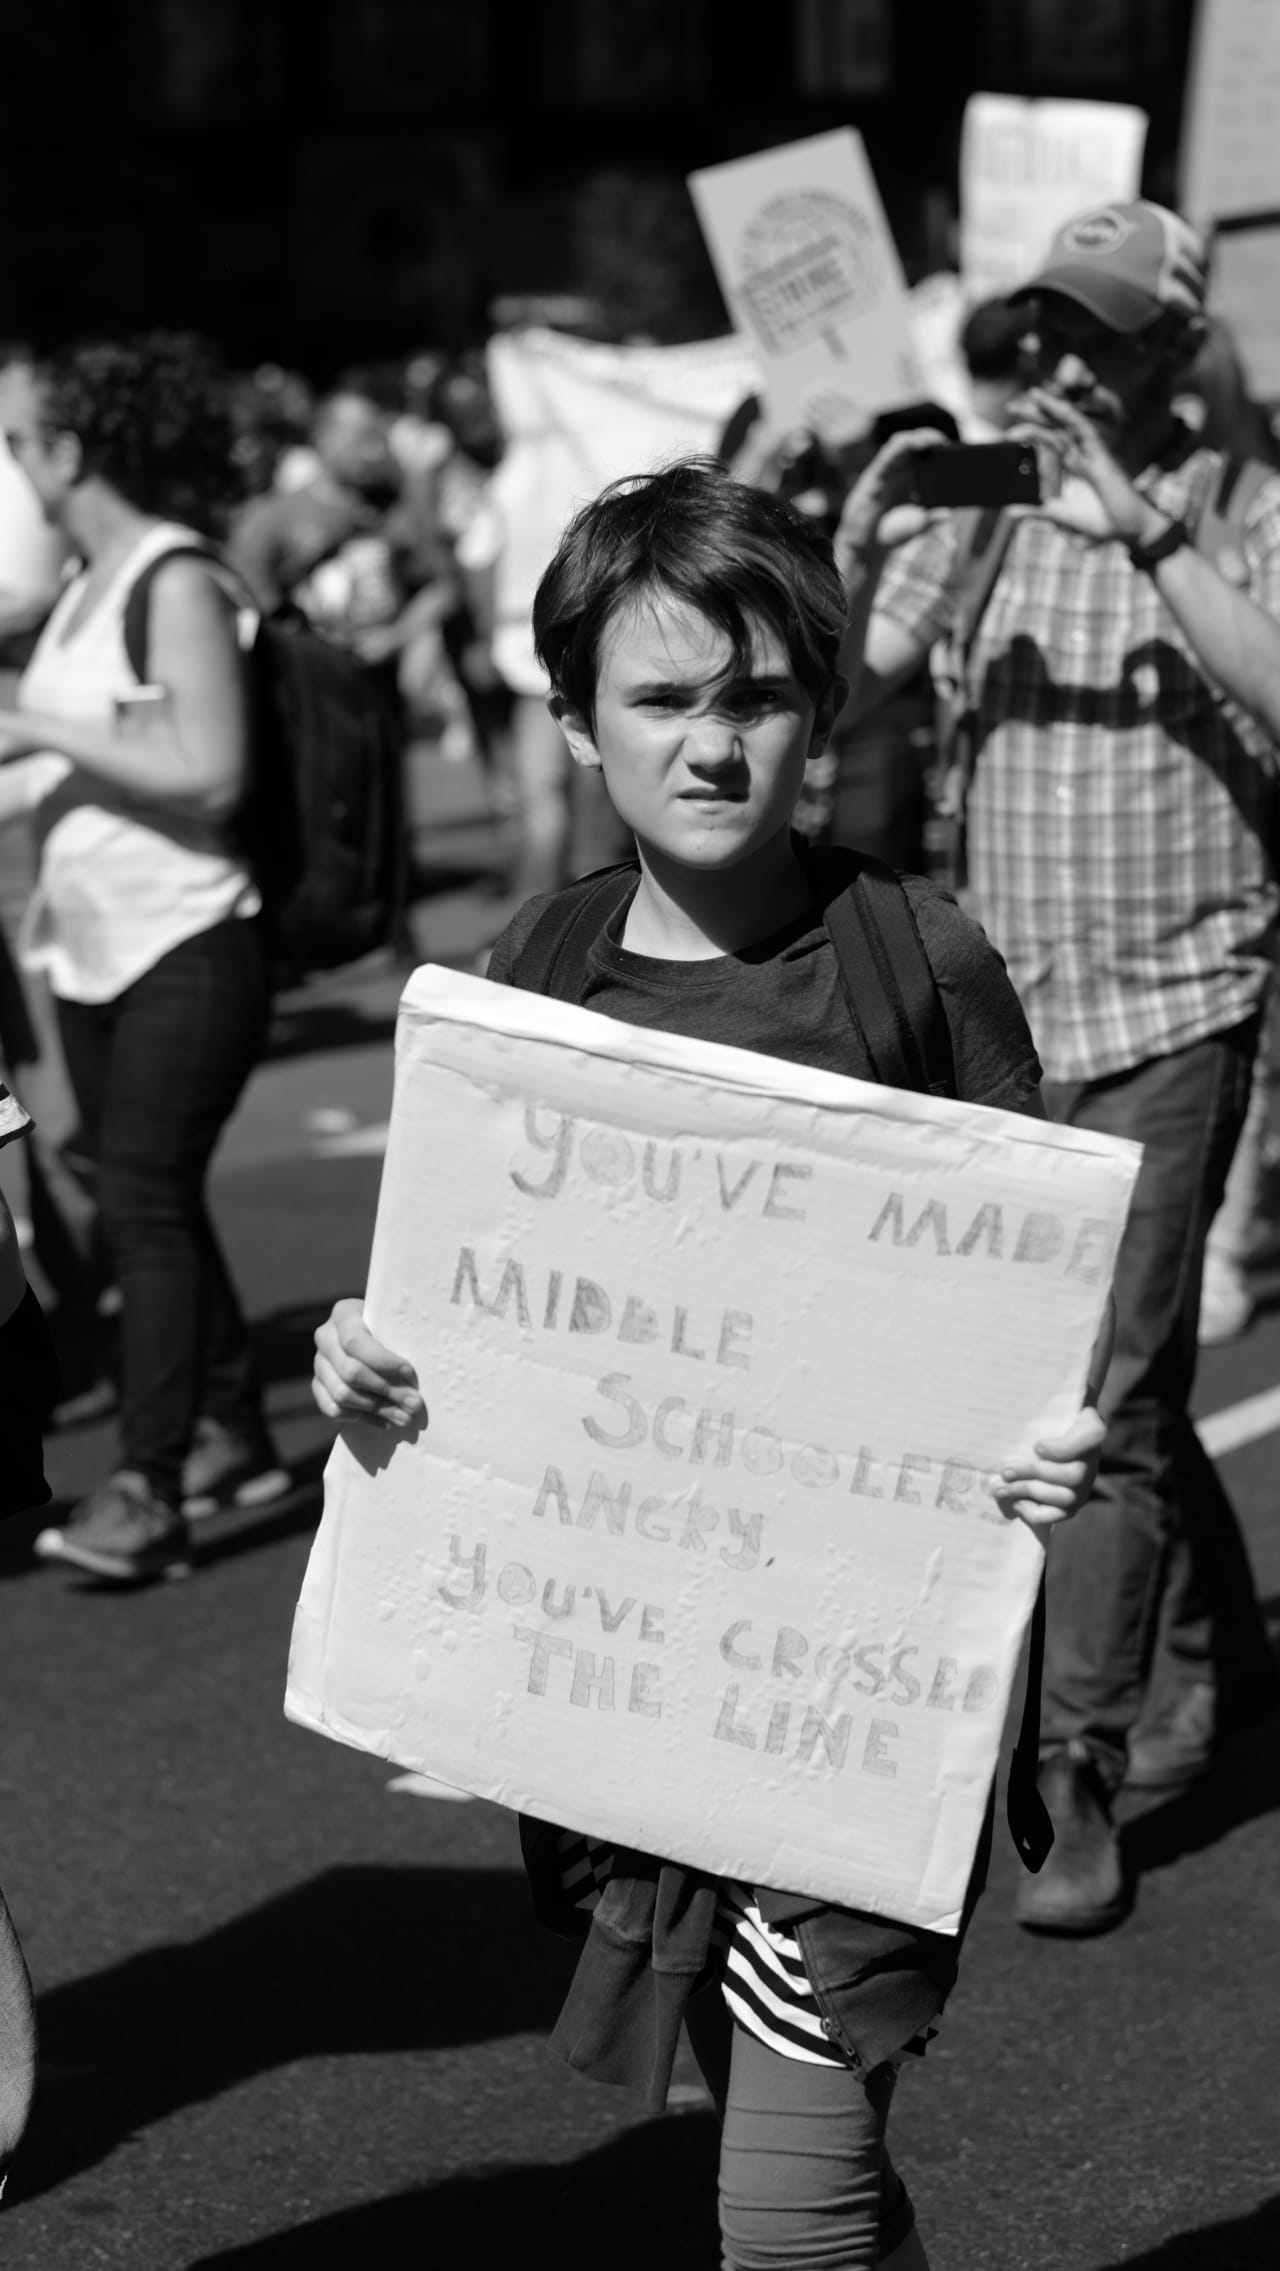 STRIKE
YOU'VE MADE
MIDDLE
SCHOOLERS
ANGRY,
YOU'VE CROSSED
THE LINE